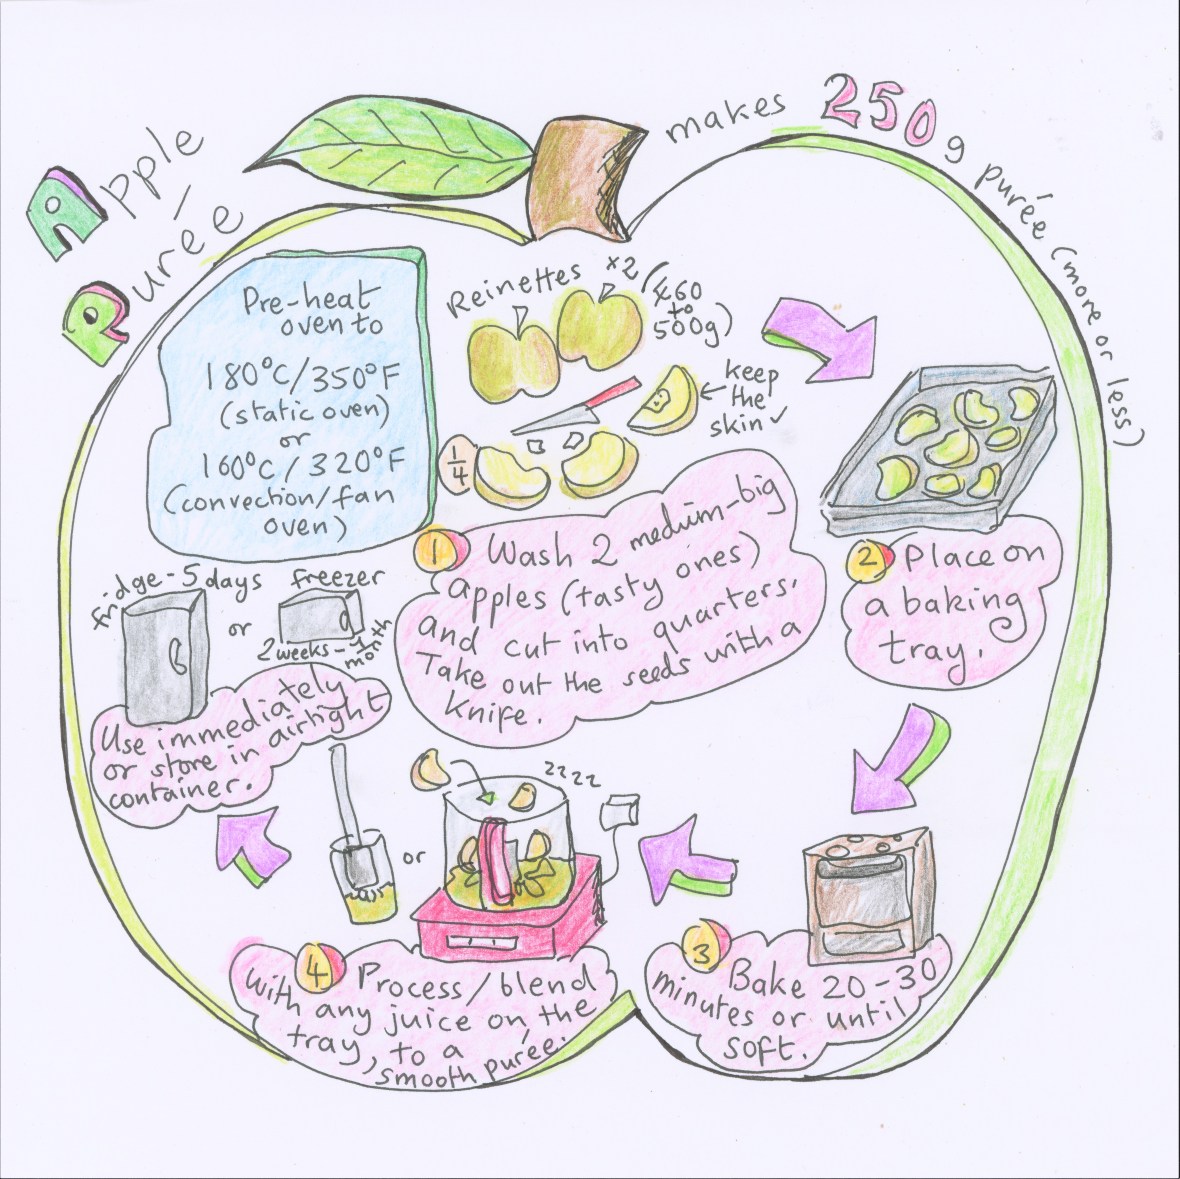 Apple
Purée
makes 250g purée (more or less)
Pre-heat
oven to
180°C/350°F
(static oven)
or
160°C/320°F
(convection/fan
oven)
Reinettes x2 (460
to
500g)
keep
the
skin ✓
1/4
1 Wash 2 medium-big
apples (tasty ones)
and cut into quarters.
Take out the seeds with a
knife.
2 Place on
a baking
tray.
3 Bake 20-30
minutes or until
soft.
zzzz
or
4 Process/blend
with any juice on the
tray, to a
smooth purée.
fridge-5 days
or
freezer
2 weeks-1 month
Use immediately
or store in airtight
container.